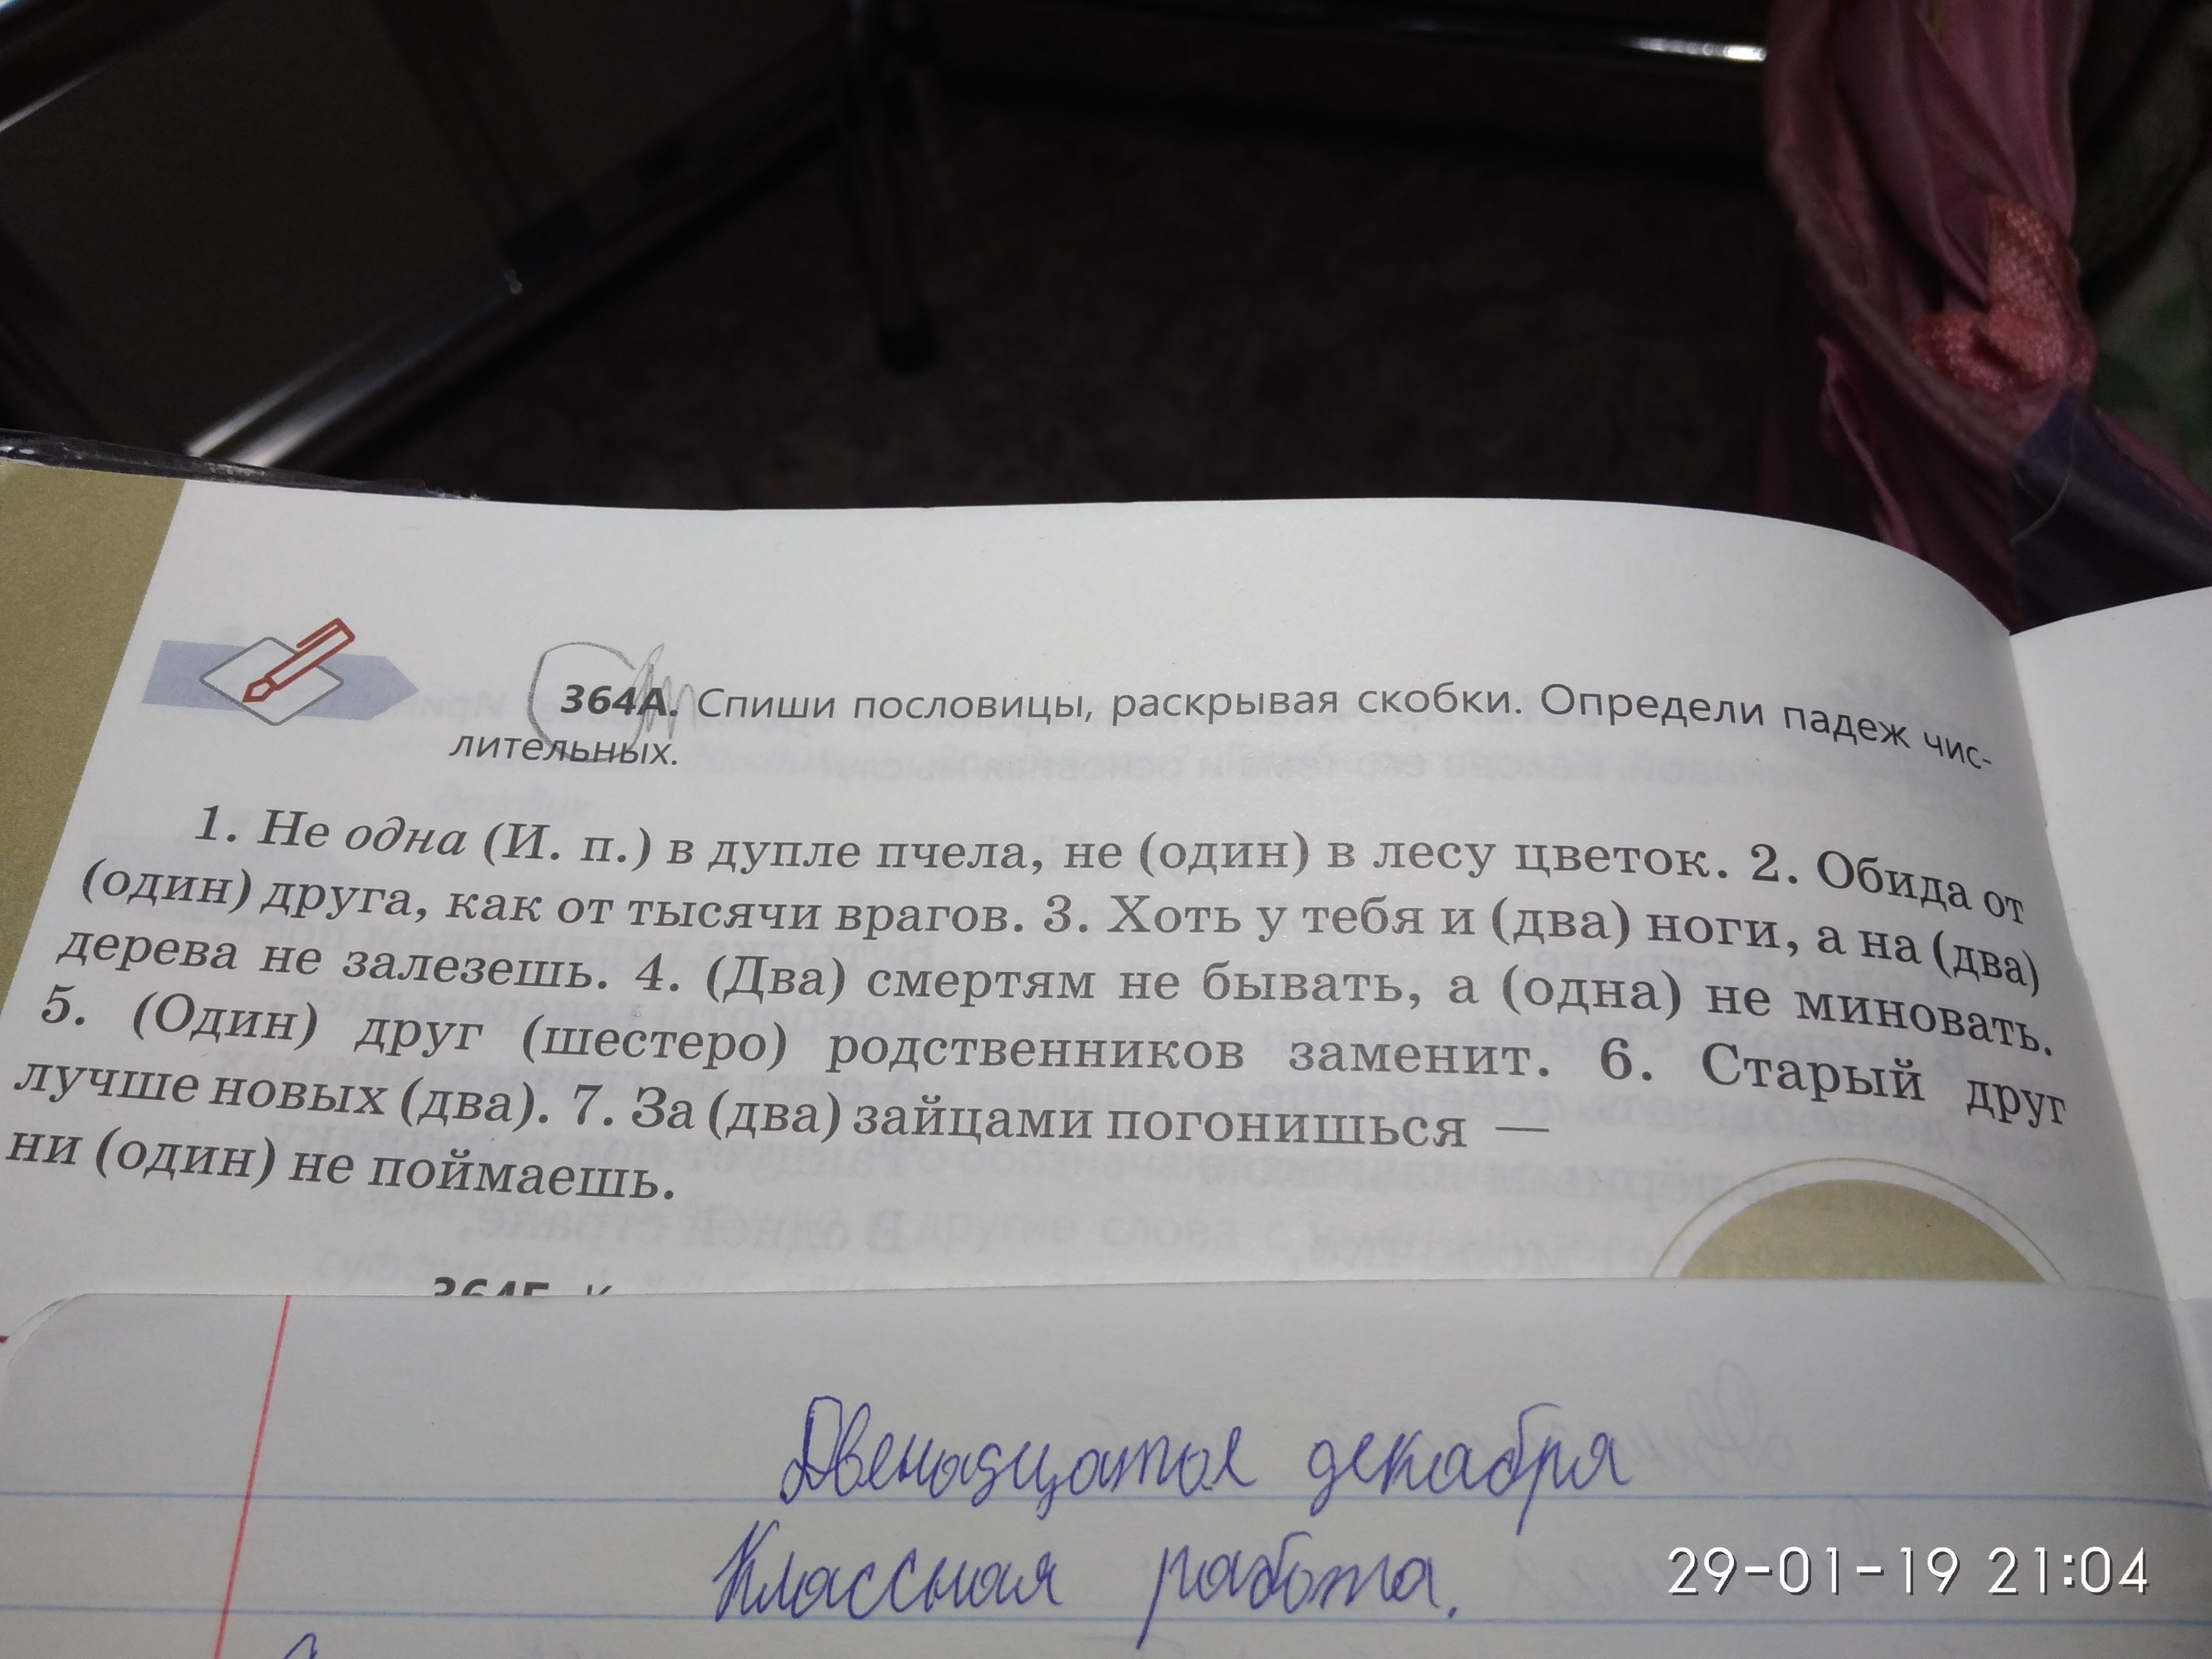 364А. Спиши пословицы, раскрывая скобки. Определи падеж чис-
лительных.
1. Не одна (И. п.) в дупле пчела, не (один) в лесу цветок. 2. Обида от
(один) друга, как от тысячи врагов. 3. Хоть у тебя и (два) ноги, а на (два)
дерева не залезешь. 4. (Два) смертям не бывать, а (одна) не миновать.
5. (Один) друг (шестеро) родственников заменит. 6. Старый друг
лучше новых (два). 7. За (два) зайцами погонишься —
ни (один) не поймаешь.
Двенадцатое декабря
Классная работа.
29-01-19 21:04